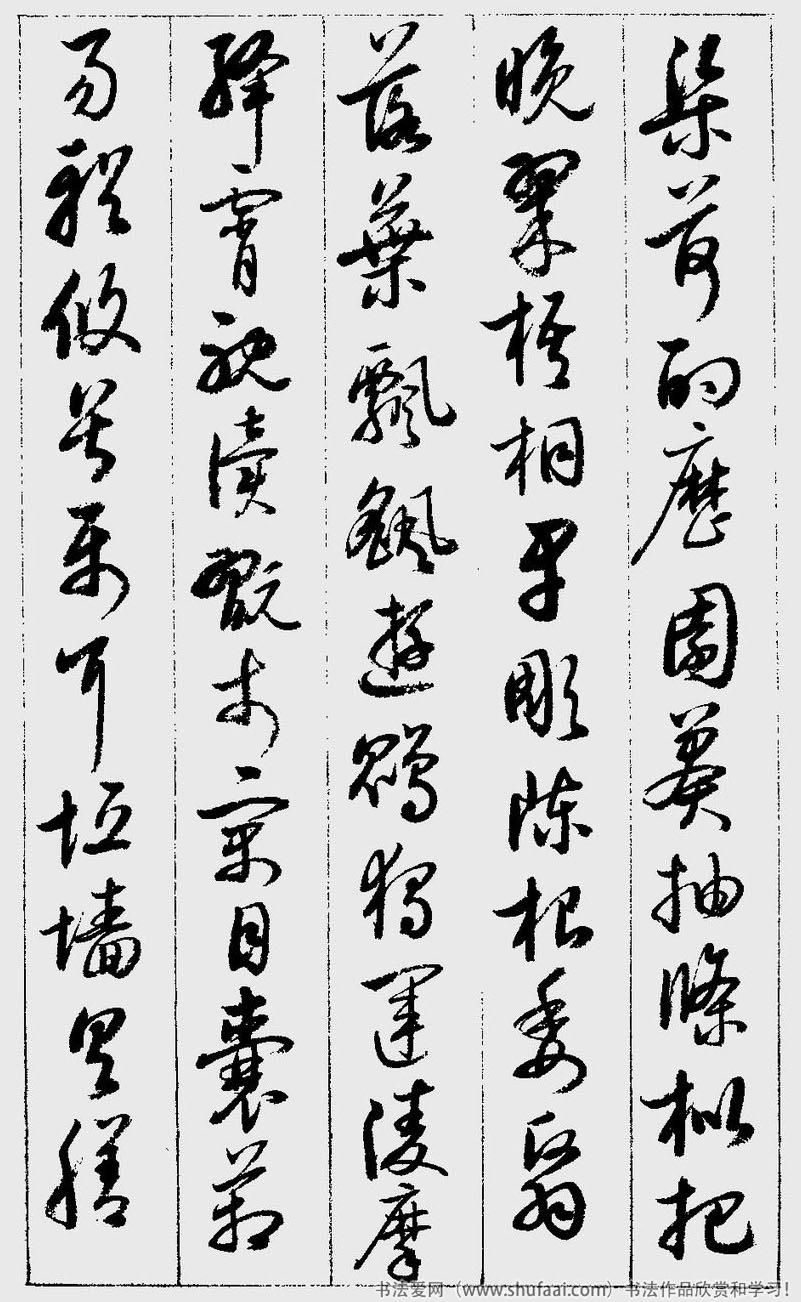 渠荷的歷園莽抽條枇杷
晚翠梧桐早彫陳根委翳
落葉飄颻遊鵾獨運凌摩
絳霄耽讀翫市寓目囊箱
易輶攸畏屬耳垣墻具膳
书法爱网（www.shufaai.com）书法作品欣赏和学习！